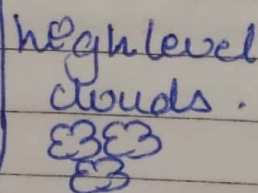 high level
clouds.